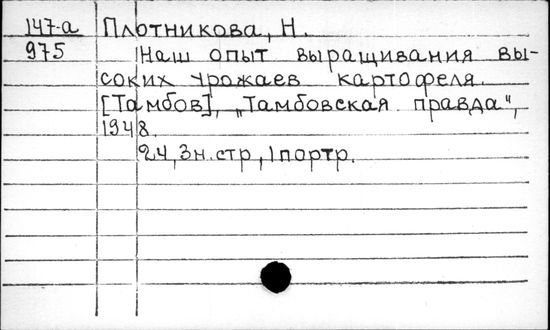 147-а Плотникова, Н.
975 Наш опыт выращивания вы-
соких урожаев картофеля.
[Тамбов], „Тамбовская правда",
1948.
24, 3 н. стр, 1 портр.